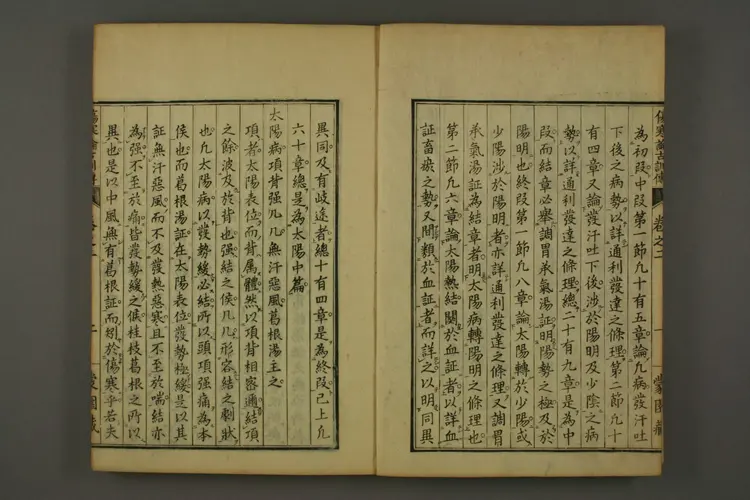 為初段中段第一節九十有五章論凡病發汗吐
下後之病勢以詳通利發達之條理第二節九十
有四章又論發汗吐下後涉於陽明及少陰之病
勢以詳通利發達之條理總二十有九章是為中
段而結章必舉調胃承氣湯証明陽勢之極及於
陽明也終段第一節凡八章論太陽轉於少陽或
少陽涉於陽明者亦詳通利發達之條理又調胃
承氣湯証為結章者明太陽病轉陽明之條理也
第二節凡六章論太陽熱結關於血証者以詳血
証畜瘀之勢又間類於血証者而詳之以明同異
異同及有岐途者總十有四章是為終段已上凡
六十章總是為太陽中篇
太陽病項背强几几無汗惡風葛根湯主之
項者太陽表位而背屬體然以項背相密邇結項
之餘波及於背也强結之候几几形容結之劇狀
也凡太陽病以發勢緩必結所以頭項强痛為本
候也而葛根湯証在太陽表位發勢極緩是以其
証無汗惡風而不及發熱惡寒且不至於喘結亦
為强不至於痛皆發勢緩之候桂枝葛根之所以
異也是以中風無有葛根証而列於傷寒乎若夫
卷之二
一
二